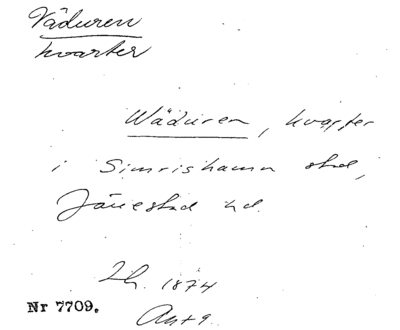 Väduren
kvarter
Wäduren, kvarter
i Simrishamn stad,
Järrestad hd.
Lh. 1874
Ant 9
Nr 7709.